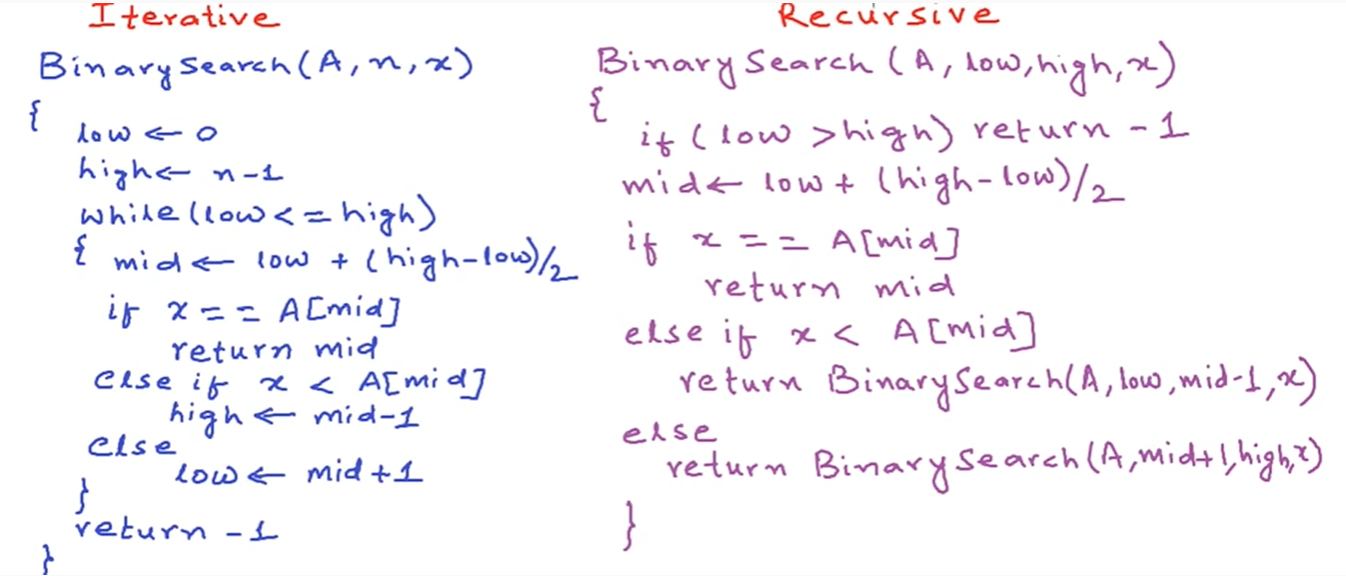 Iterative
BinarySearch(A, n, x)
{
low ← 0
high ← n-1
while(low <= high)
{ mid ← low + (high-low)/2
if x == A[mid]
return mid
else if x < A[mid]
high ← mid-1
else
low ← mid+1
}
return -1
}
Recursive
BinarySearch(A, low, high, x)
{
if (low > high) return -1
mid ← low + (high-low)/2
if x == A[mid]
return mid
else if x < A[mid]
return BinarySearch(A, low, mid-1, x)
else
return BinarySearch(A, mid+1, high, x)
}